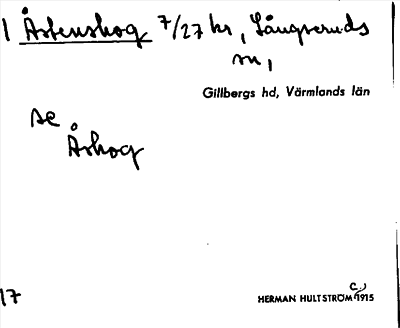 1 Åstenskog 7/27 kr, Långseruds
sn,
Gillbergs hd, Värmlands län
se
Åskog
17
HERMAN HULTSTRÖM c. 1915